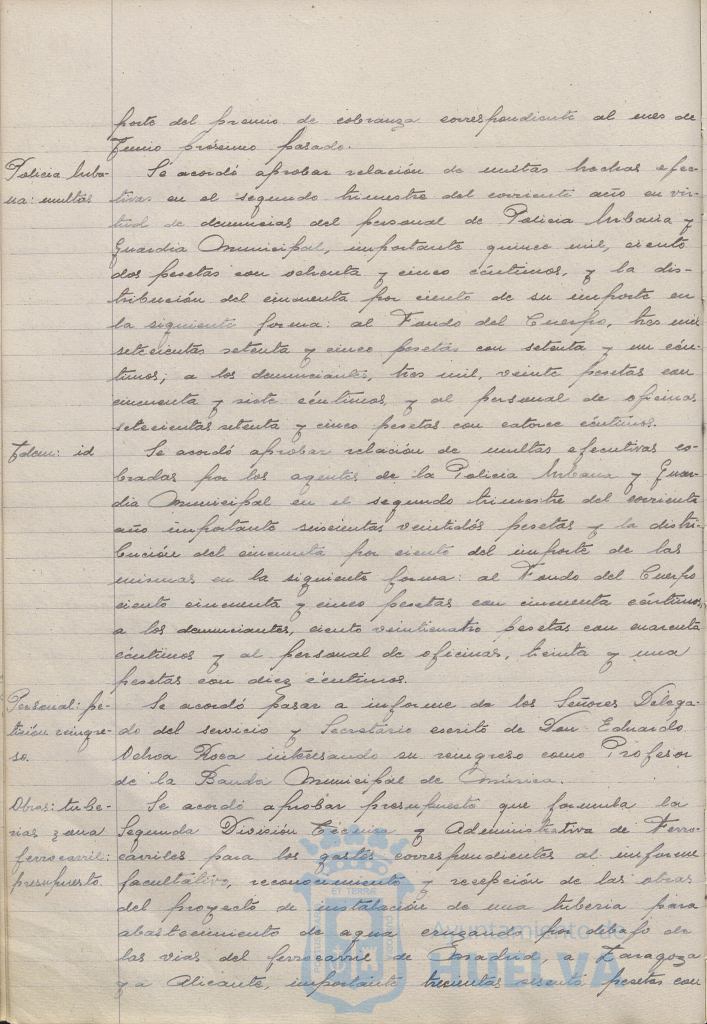 porte del premio de cobranza correspondiente al mes de
Junio próximo pasado.
Policia Urba-
na: multas
Se acordó aprobar relación de multas hechas efec-
tivas en el segundo trimestre del corriente año en vir-
tud de denuncias del personal de Policia Urbana y
Guardia Municipal, importante quince mil, ciento
dos pesetas con ochenta y cinco céntimos, y la dis-
tribución del cincuenta por ciento de su importe en
la siguiente forma: al Fondo del Cuerpo, tres mil
setecientas setenta y cinco pesetas con setenta y un cén-
timos; a los denunciantes, tres mil, veinte pesetas con
cincuenta y siete céntimos y al personal de oficinas
setecientas setenta y cinco pesetas con catorce céntimos.
Idem: id
Se acordó aprobar relación de multas ejecutivas co-
bradas por los agentes de la Policia Urbana y Guar-
dia Municipal en el segundo trimestre del corriente
año importante seiscientas veintidós pesetas y la distri-
bución del cincuenta por ciento del importe de las
mismas en la siguiente forma: al Fondo del Cuerpo
ciento cincuenta y cinco pesetas con cincuenta céntimos,
a los denunciantes, ciento veinticuatro pesetas con cuarenta
céntimos y al personal de oficinas, treinta y una
pesetas con diez céntimos.
Personal: pe-
tición reingre-
so.
Se acordó pasar a informe de los Señores Delega-
do del servicio y Secretario escrito de Don Eduardo
Ochoa Roca interesando su reingreso como Profesor
de la Banda Municipal de Música.
Obras: tube-
rias zona
ferrocarril:
presupuesto.
Se acordó aprobar presupuesto que formula la
Segunda División Técnica y Administrativa de Ferro-
carriles para los gastos correspondientes al informe
facultativo, reconocimiento y recepción de las obras
del proyecto de instalación de una tuberia para
abastecimiento de agua cruzando por debajo de
las vias del ferrocarril de Madrid, a Zaragoza
y a Alicante, importante trescientas sesenta pesetas con
Ayuntamiento de
HUELVA